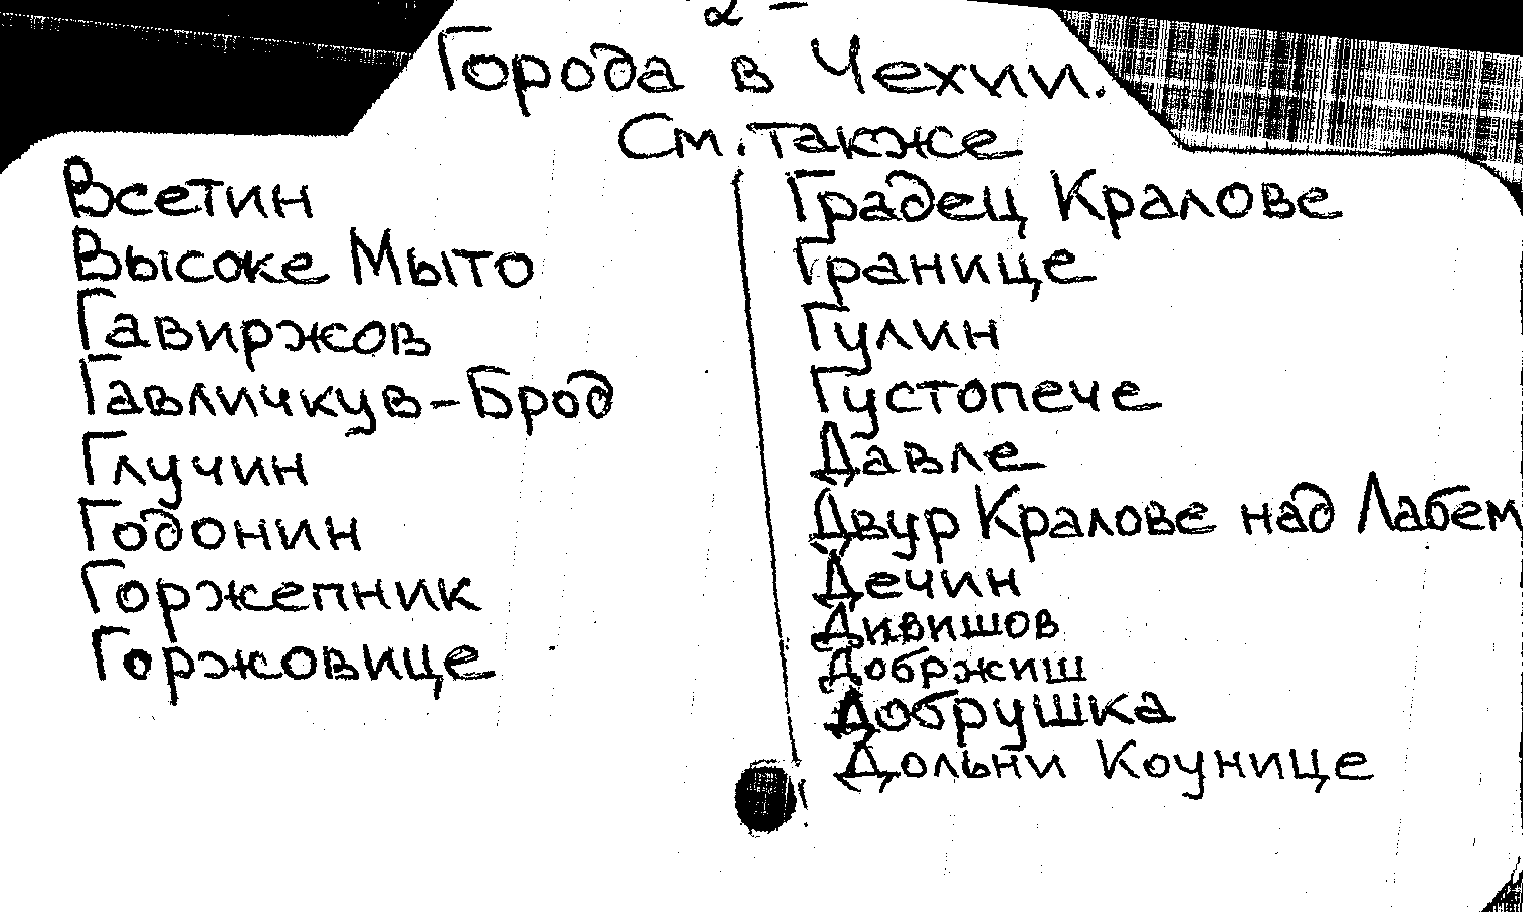 2 -
Города в Чехии.
См. также
Всетин
Высоке Мыто
Гавиржов
Гавличкув-Брод
Глучин
Годонин
Горжепник
Горжовице
Градец Кралове
Границе
Гулин
Густопече
Давле
Двур Кралове над Лабем
Дечин
Дивишов
Добржиш
Добрушка
Дольни Коунице